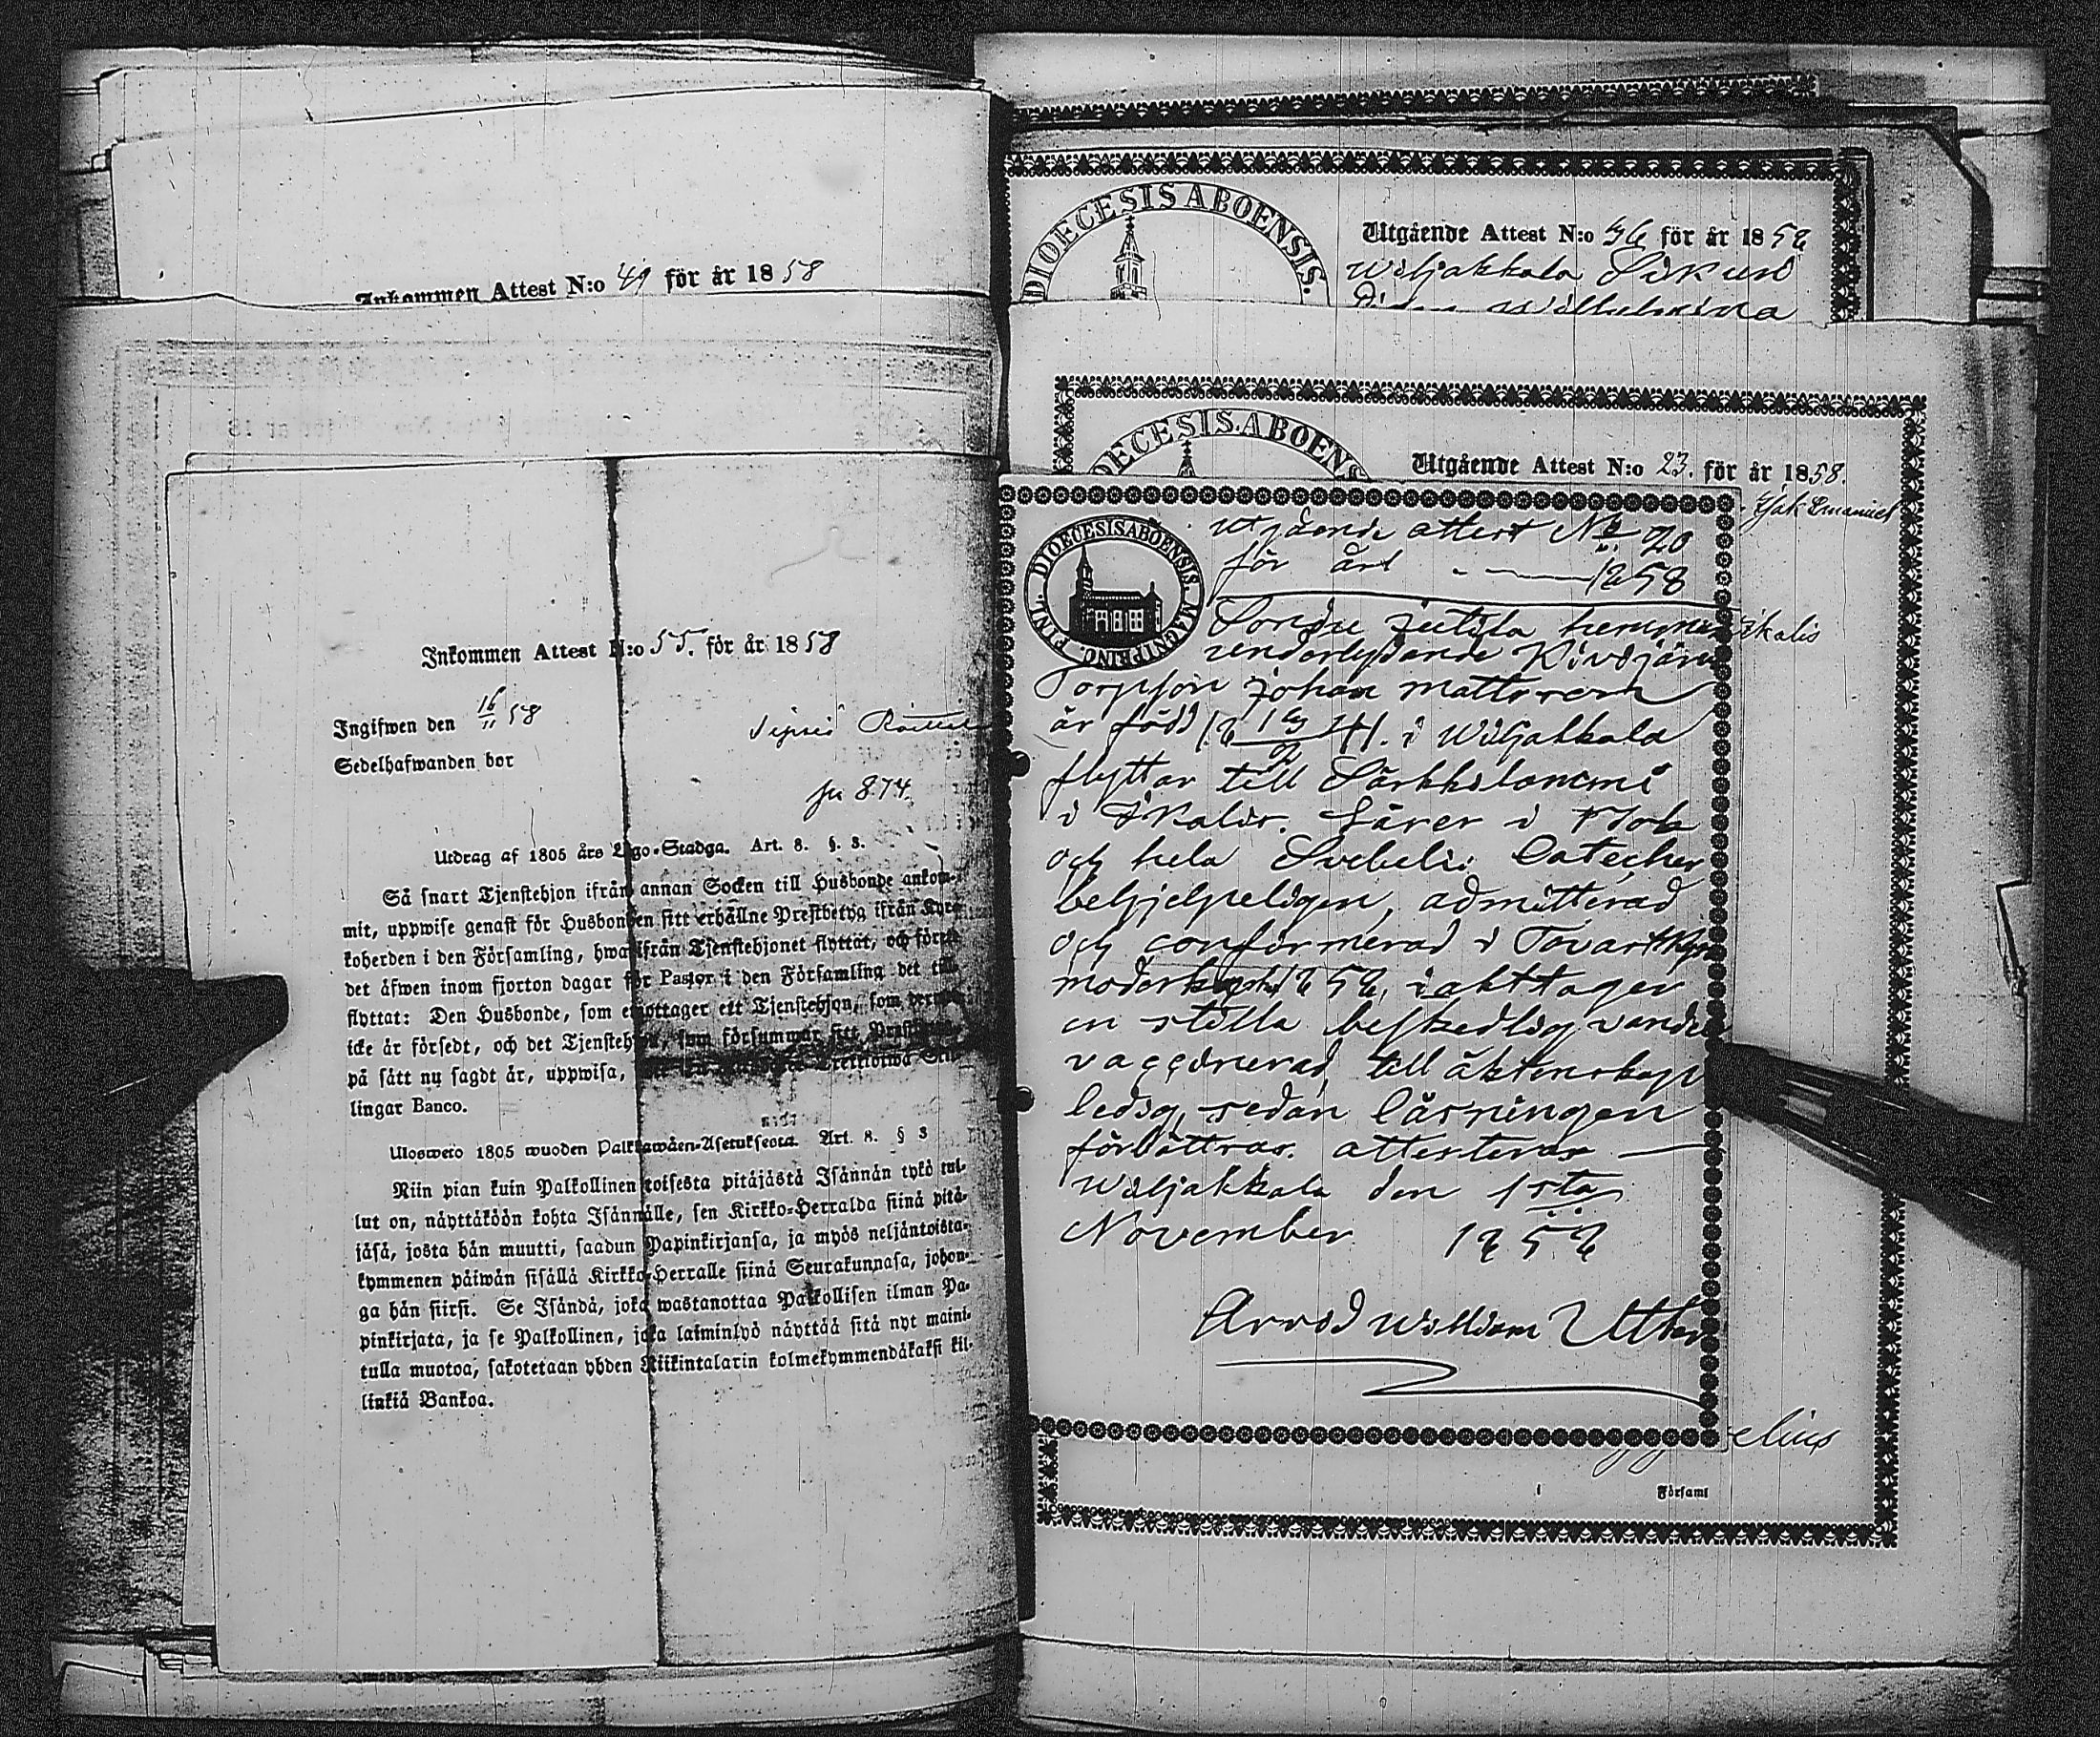 Inkommen Attest N:o 49 för år 1858
Inkommen Attest N:o 55. för år 1858
Ingifwen den 16/11 58
Sedelhafwanden bor
pn 874.
Utdrag af 1805 års Lego-Stadga. Art. 8. §. 3.
Så snart Tjenstehjon ifrån annan Socken till Husbonde ankom-
mit, uppwise genast för Husbonden sitt erhållne Prestbetyg ifrån Kyr-
koherden i den Församling, hwarifrån Tjenstehjonet flyttat, och förete
det äfwen inom fjorton dagar för Pastor i den Församling det till-
flyttat: Den Husbonde, som emottager ett Tjenstehjon, som dermed
icke är försedt, och det Tjenstehjon, som försummar sitt Prestbetyg
på sätt ny sagdt är, uppwisa, Trettiotwå Skil-
lingar Banco.
Uloswето 1805 wuoden Palkkawäen-Asetuksesta. Art. 8. § 3
Niin pian kuin Palkollinen toisesta pitäjästä Isännän tykö tul-
lut on, näyttäköön kohta Isännälle, sen Kirkko-Herralda siinä pitä-
jäsä, josta hän muutti, saadun Papinkirjansa, ja myös neljäntoista-
kymmenen päiwän sisällä Kirkko-Herralle siinä Seurakunnasa, johon-
ga hän siirsi. Se Isändä, joka wastanottaa Palkollisen ilman Pa-
pinkirjata, ja se Palkollinen, joka laiminlyö näyttää sitä nyt maini-
tulla muotoa, sakotetaan yhden Riikintalarin kolmekymmendäkaksi kil-
linkiä Bankoa.
DIOECESIS ABOENSIS.
Utgående Attest N:o 36 för år 1858
Wiljakkala
Wilhelmina
DIOECESIS ABOENS
Utgående Attest N:o 23. för år 1858.
Isak Emanuel
DIOECESIS ABOENSIS. MAGNI PRINC. FINL.
utgående attest No 20
för året 1858
Jutila hemman
underlydande Kivijärvi
Torpson Johan Mattsson
är född i Wiljakkala
flyttar till Särkkilammi
i Ikalis. Läser i Bok
och hela Svebelii Cateches
behjelpeligen, admitterad
och confirmerad i Tavastkyro
moderkyrka 1858, iakttager
en stilla beskedlig vandel
vaccinerad, till äktenskap
ledig, sedan läsningen
förbättras. attesteras
Wiljakkala den 1sta
November 1858
Arvid William Utter
kalis
elius
i
Församl